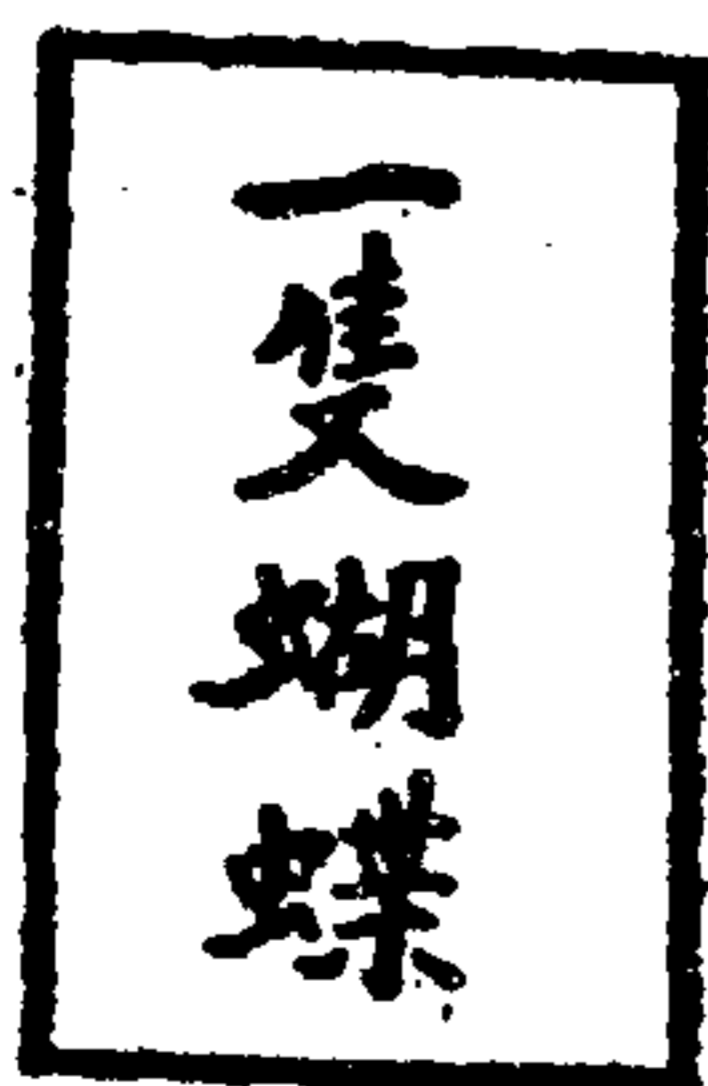 一隻蝴蝶